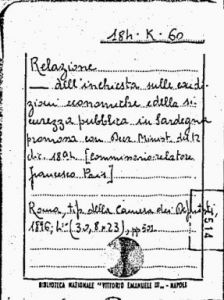 184. K. 60
Relazione
— dell'inchiesta sulle condi-
zioni economiche e della si-
curezza pubblica in Sardegna
promossa con Decr. Minist. du 12
dic. 1894. [commissario relatore
Francesco Pais]
Roma, tip. della Camera dei Deputati,
1896, 4° (30,8 x 23), pp 502.
514
BIBLIOTECA NAZIONALE "VITTORIO EMANUELE III" - NAPOLI